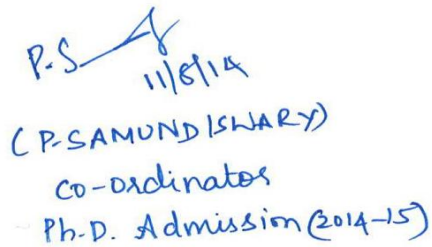 P.S
11/8/14
(P.SAMUNDISWARY)
CO-ordinator
Ph.D. Admission (2014-15)